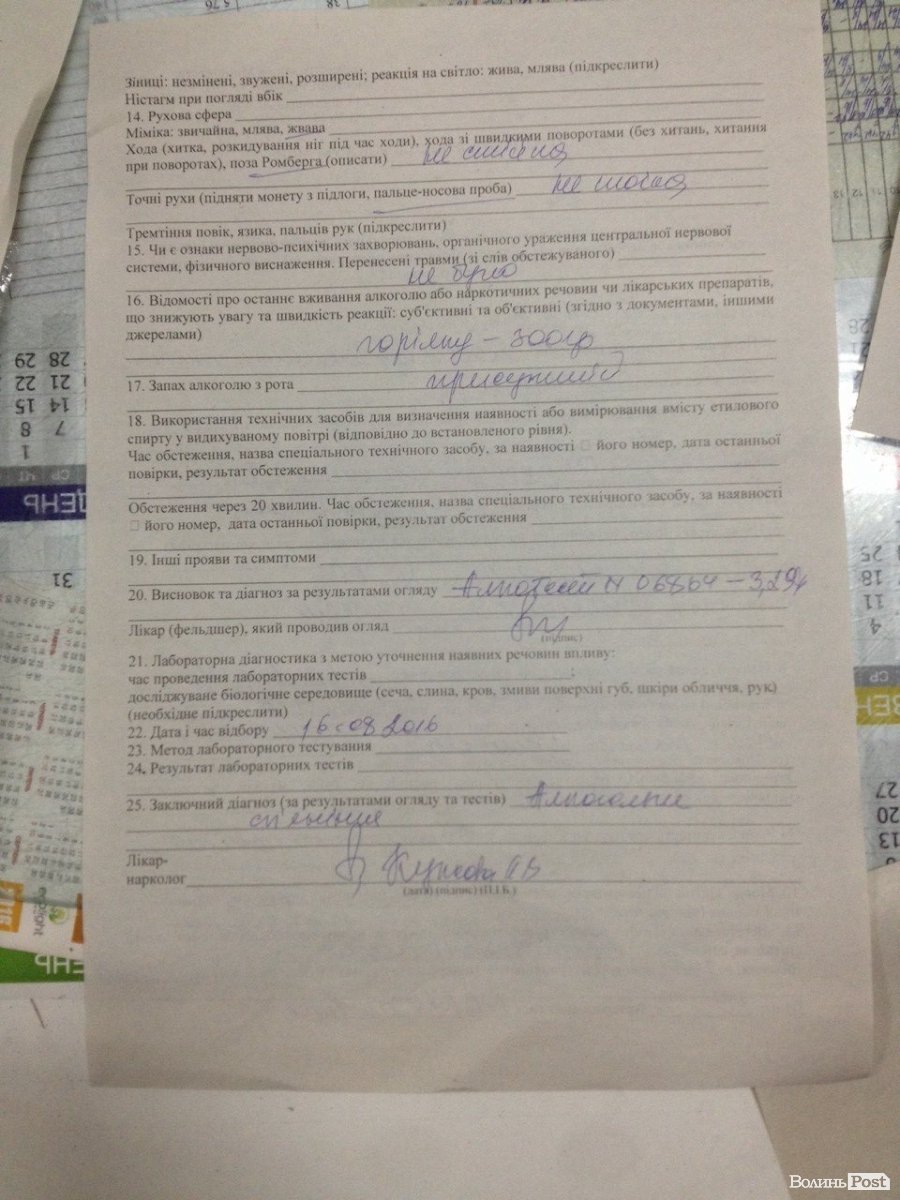 Зіниці: незмінені, звужені, розширені; реакція на світло: жива, млява (підкреслити)
Ністагм при погляді вбік
14. Рухова сфера
Міміка: звичайна, млява, жвава
Хода (хитка, розкидування ніг під час ходи), хода зі швидкими поворотами (без хитань, хитання
при поворотах), поза Ромберга (описати) не стійка
Точні рухи (підняти монету з підлоги, пальце-носова проба) не точна
Тремтіння повік, язика, пальців рук (підкреслити)
15. Чи є ознаки нервово-психічних захворювань, органічного ураження центральної нервової
системи, фізичного виснаження. Перенесені травми (зі слів обстежуваного)
не було
16. Відомості про останнє вживання алкоголю або наркотичних речовин чи лікарських препаратів,
що знижують увагу та швидкість реакції: суб'єктивні та об'єктивні (згідно з документами, іншими
джерелами)
горілку - 300гр
17. Запах алкоголю з рота присутній
18. Використання технічних засобів для визначення наявності або вимірювання вмісту етилового
спирту у видихуваному повітрі (відповідно до встановленого рівня).
Час обстеження, назва спеціального технічного засобу, за наявності □ його номер, дата останньої
повірки, результат обстеження
Обстеження через 20 хвилин. Час обстеження, назва спеціального технічного засобу, за наявності
□ його номер, дата останньої повірки, результат обстеження
19. Інші прояви та симптоми
20. Висновок та діагноз за результатами огляду Алкотест N 06864 - 3,29‰
Лікар (фельдшер), який проводив огляд
(підпис)
21. Лабораторна діагностика з метою уточнення наявних речовин впливу:
час проведення лабораторних тестів
досліджуване біологічне середовище (сеча, слина, кров, змиви поверхні губ, шкіри обличчя, рук)
(необхідне підкреслити)
22. Дата і час відбору 16.08.2016
23. Метод лабораторного тестування
24. Результат лабораторних тестів
25. Заключний діагноз (за результатами огляду та тестів) Алкогольне
сп'яніння
Лікар-
нарколог
(дата) (підпис) (П.І.Б.)
ВолиньPost